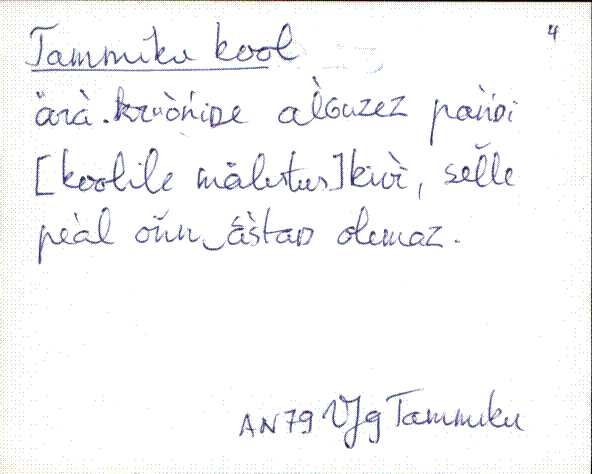 4
Tammiku kool
ärà. kruòńiᴅe al̀ɢuzez pàǹᴅi
[koolile mälestus] kivì, sĕlle
peàl oŭn‿àstaᴅ olemaz.
AN79 VJg Tammiku